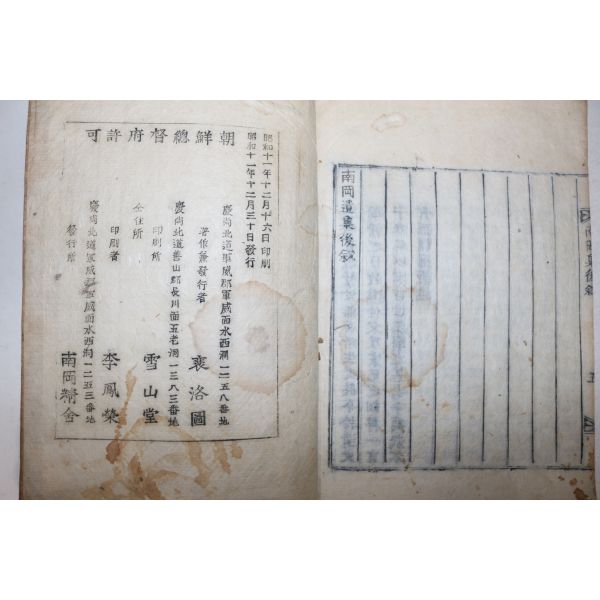 南岡遺稾後敍
五
昭和十一年十二月十六日印刷
昭和十一年十二月三十日發行
朝鮮總督府許可
慶尚北道軍威郡軍威面水西洞一二五八番地
著作兼發行者 裵洛圖
慶尚北道善山郡長川面五老洞一三八三番地
印刷所 雪山堂
仝住所
印刷者 李鳳榮
慶尚北道軍威郡軍威面水西洞一二五三番地
發行所 南岡精舍